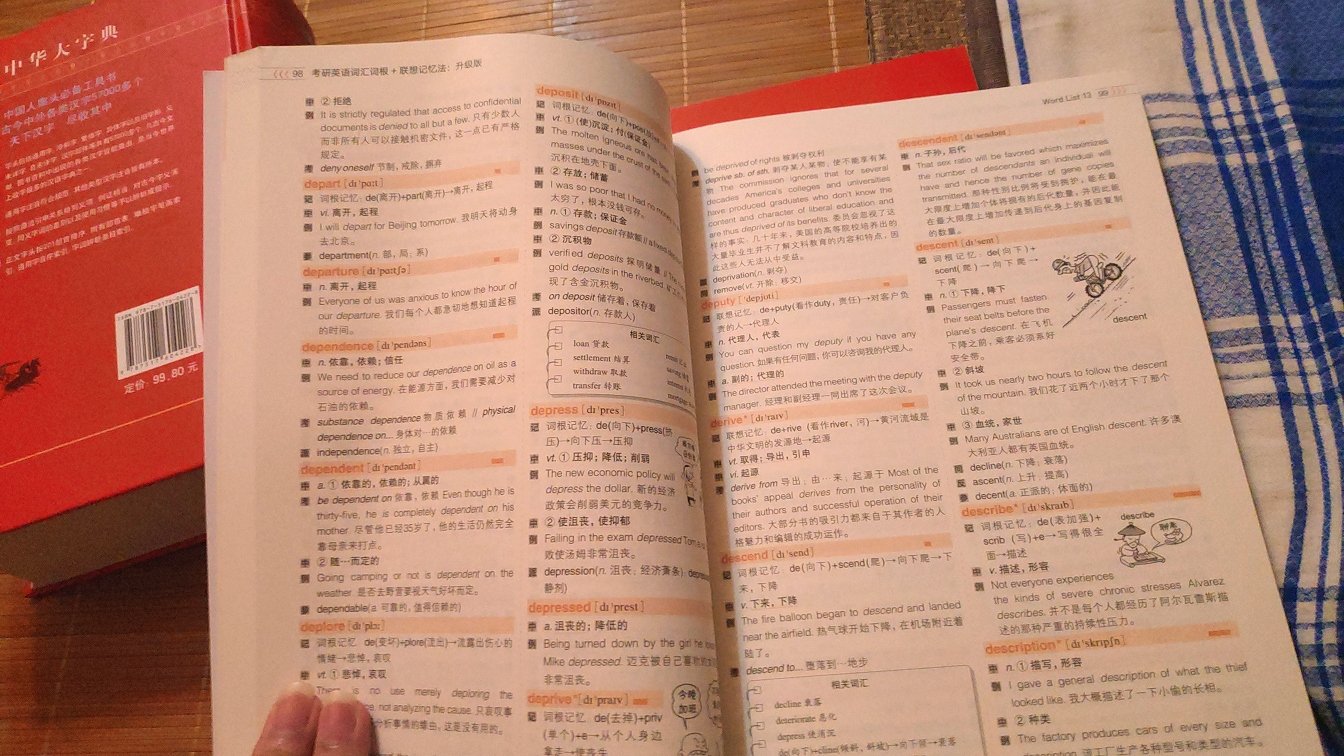 中华大字典
中国人案头必备工具书
古今中外各类汉字57000多个
天下汉字 尽收其中
定价：99.80元
98 考研英语词汇词根+联想记忆法：升级版
② 拒绝
It is strictly regulated that access to confidential
documents is denied to all but a few. 只有少数人
而非所有人可以接触机密文件，这一点已有严格
规定。
deny oneself 节制，戒除，摒弃
depart [dɪˈpɑːt]
词根记忆：de(离开)+part(离开)→离开，起程
vi. 离开，起程
I will depart for Beijing tomorrow. 我明天将动身
去北京。
department(n. 部，局；系)
departure [dɪˈpɑːtʃə]
n. 离开，起程
Everyone of us was anxious to know the hour of
our departure. 我们每个人都急切地想知道起程
的时间。
dependence [dɪˈpendəns]
n. 依靠，依赖；信任
We need to reduce our dependence on oil as a
source of energy. 在能源方面，我们需要减少对
石油的依赖。
substance dependence 物质依赖 // physical
dependence on... 身体对…的依赖
independence(n. 独立，自主)
dependent [dɪˈpendənt]
a. ① 依靠的，依赖的；从属的
be dependent on 依靠，依赖 Even though he is
thirty-five, he is completely dependent on his
mother. 尽管他已经35岁了，他的生活仍然完全
靠母亲来打点。
② 随…而定的
Going camping or not is dependent on the
weather. 是否去野营要视天气好坏而定。
dependable(a. 可靠的，值得信赖的)
deplore [dɪˈplɔː]
词根记忆：de(变坏)+plore(流出)→流露出伤心的
情绪→悲悼，哀叹
vt. ① 悲悼，哀叹
There is no use merely deploring the
not analyzing the cause. 只哀叹事
分析事情的缘由，这是没有用的。
deposit [dɪˈpɒzɪt]
词根记忆：de(向下)+pos
vt. ① (使)沉淀；付(保证金)
The molten igneous ore had been
masses under the crust of the
沉积在地壳下面。
② 存放；储蓄
I was so poor that I had no money
太穷了，根本没钱可存。
n. ① 存款；保证金
savings deposit 存款额 // a fixed
② 沉积物
verified deposits 探明储量 //
gold deposits in the riverbed.
现了含金沉积物。
on deposit 储存着，保存着
depositor(n. 存款人)
相关词汇
loan 贷款
settlement 结算
withdraw 取款
transfer 转账
depress [dɪˈpres]
词根记忆：de(向下)+press(挤
压)→向下压→压抑
vt. ① 压抑；降低；削弱
The new economic policy will
depress the dollar. 新的经济
政策会削弱美元的竞争力。
② 使沮丧，使抑郁
Failing in the exam depressed Tom
败使汤姆非常沮丧。
depression(n. 沮丧；经济萧条)
静剂)
depressed [dɪˈprest]
a. 沮丧的；降低的
Being turned down by the girl he
Mike depressed. 迈克被自己喜欢的女
非常沮丧。
deprive* [dɪˈpraɪv]
词根记忆：de(去掉)+priv
(单个)+e→从个人身边
拿走→使丧失
今晚
加班
Word List 13 99
be deprived of rights 被剥夺权利
deprive sb. of sth. 剥夺某人某物，使不能享有某
物 The commission ignores that for several
decades America's colleges and universities
have produced graduates who don't know the
content and character of liberal education and
are thus deprived of its benefits. 委员会忽视了这
样的事实：几十年来，美国的高等院校培养出的
大量毕业生并不了解文科教育的内容和特点，因
此这些人无法从中受益。
deprivation(n. 剥夺)
remove(vt. 开除；移交)
deputy [ˈdepjʊti]
联想记忆：de+puty(看作duty，责任)→对客户负
责的人→代理人
n. 代理人，代表
You can question my deputy if you have any
question. 如果有任何问题，你可以咨询我的代理人。
a. 副的；代理的
The director attended the meeting with the deputy
manager. 经理和副经理一同出席了这次会议。
derive* [dɪˈraɪv]
联想记忆：de+rive (看作river，河)→黄河流域是
中华文明的发源地→起源
vt. 取得；导出，引申
vi. 起源
derive from 导出；由…来；起源于 Most of the
books' appeal derives from the personality of
their authors and successful operation of their
editors. 大部分书的吸引力都来自于其作者的人
格魅力和编辑的成功运作。
descend [dɪˈsend]
词根记忆：de(向下)+scend(爬)→向下爬→下
来，下降
v. 下来，下降
The fire balloon began to descend and landed
near the airfield. 热气球开始下降，在机场附近着
陆了。
descend to... 堕落到…地步
相关词汇
decline 衰落
deteriorate 恶化
depress 使消沉
de(向下)+cline(倾斜，斜坡)→向下倾→衰落
descendant [dɪˈsendənt]
n. 子孙，后代
That sex ratio will be favored which maximizes
the number of descendants an individual will
have and hence the number of gene copies
transmitted. 那种性别比例将受到拥护，能在最
大限度上增加个体将拥有的后代数量，并因此能
在最大限度上增加传递到后代身上的基因复制
的数量。
descent [dɪˈsent]
词根记忆：de(向下)+
scent(爬)→向下爬→
下降
n. ① 下降，降下
Passengers must fasten
their seat belts before the
plane's descent. 在飞机
下降之前，乘客必须系好
安全带。
descent
② 斜坡
It took us nearly two hours to follow the descent
of the mountain. 我们花了近两个小时才下了那个
山坡。
③ 血统，家世
Many Australians are of English descent. 许多澳
大利亚人都有英国血统。
decline(n. 下降；衰落)
ascent(n. 上升；提高)
decent(a. 正派的；体面的)
describe* [dɪˈskraɪb]
词根记忆：de(表加强)+
scrib (写)+e→写得很全
面→描述
describe
v. 描述，形容
Not everyone experiences
the kinds of severe chronic stresses Alvarez
describes. 并不是每个人都经历了阿尔瓦雷斯描
述的那种严重的持续性压力。
description* [dɪˈskrɪpʃn]
n. ① 描写，形容
I gave a general description of what the thief
looked like. 我大概描述了一下小偷的长相。
② 种类
The factory produces cars of every size and
description. 该工厂生产各种型号和类型的汽车。